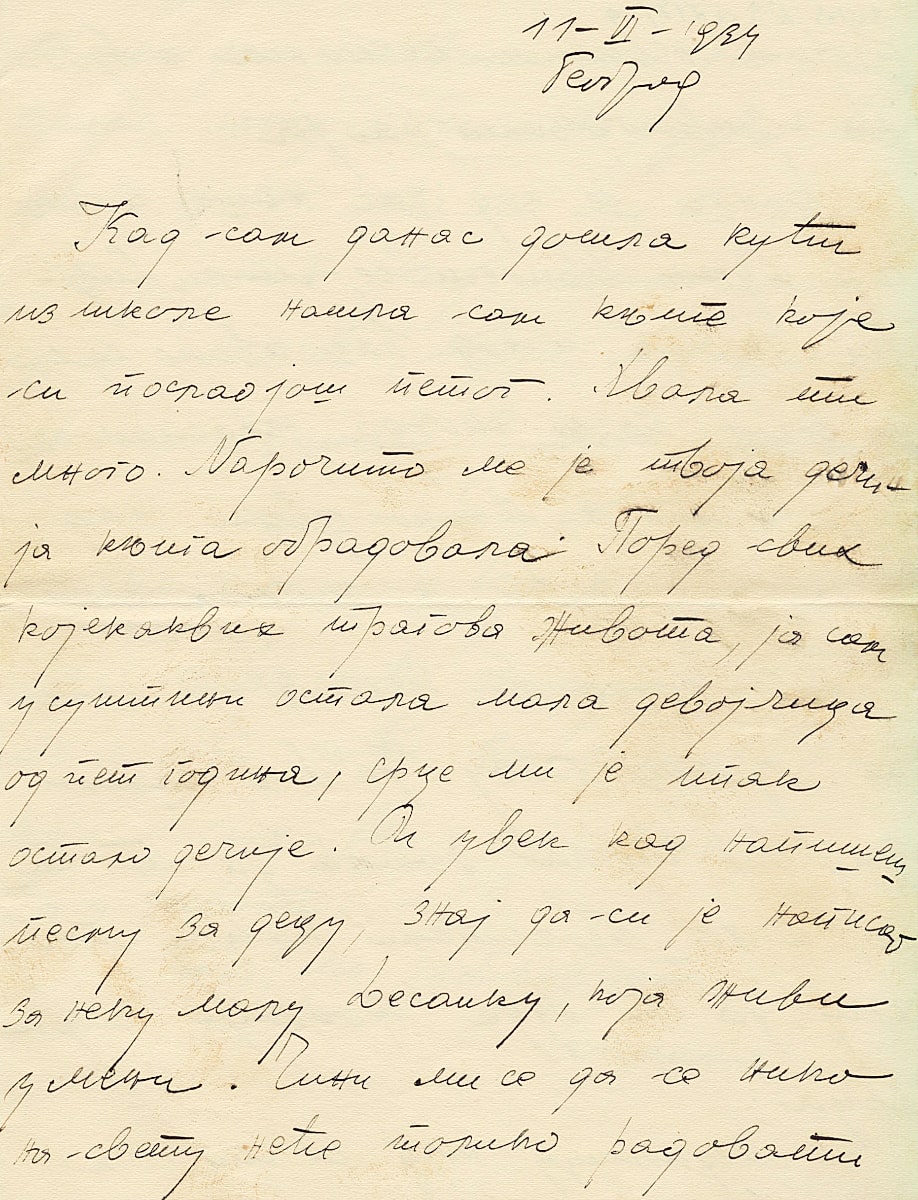 11-VI-1934
Београд
Кад сам данас дошла кући
из школе нашла сам књиге које
си послао још петог. Хвала ти
много. Нарочито ме је твоја дечи-
ја књига обрадовала. Поред свих
којекаквих трагова живота, ја сам
у суштини остала мала девојчица
од пет година, срце ми је ипак
остало дечије. Ои увек кад напишеш
песму за децу, знај да си је написао
за неку малу Десанку, која живи
у мени. Чини ми се да се нико
на свету неће толико радовати